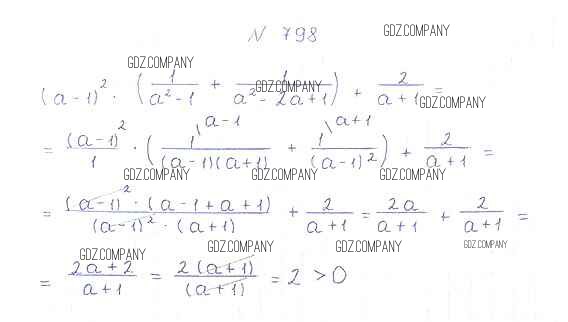 № 798 GDZ.COMPANY
GDZ.COMPANY
(a-1)² · (1/(a²-1) + 1/(a²-2a+1)) + 2/(a+1) =
GDZ.COMPANY GDZ.COMPANY
= (a-1)²/1 · (1\a-1/((a-1)(a+1)) + 1\a+1/((a-1)²)) + 2/(a+1) =
GDZ.COMPANY GDZ.COMPANY GDZ.COMPANY
= ((a-1)² · (a-1+a+1))/((a-1)² · (a+1)) + 2/(a+1) = 2a/(a+1) + 2/(a+1) =
GDZ.COMPANY GDZ.COMPANY GDZ.COMPANY GDZ.COMPANY
= (2a+2)/(a+1) = 2(a+1)/(a+1) = 2 > 0